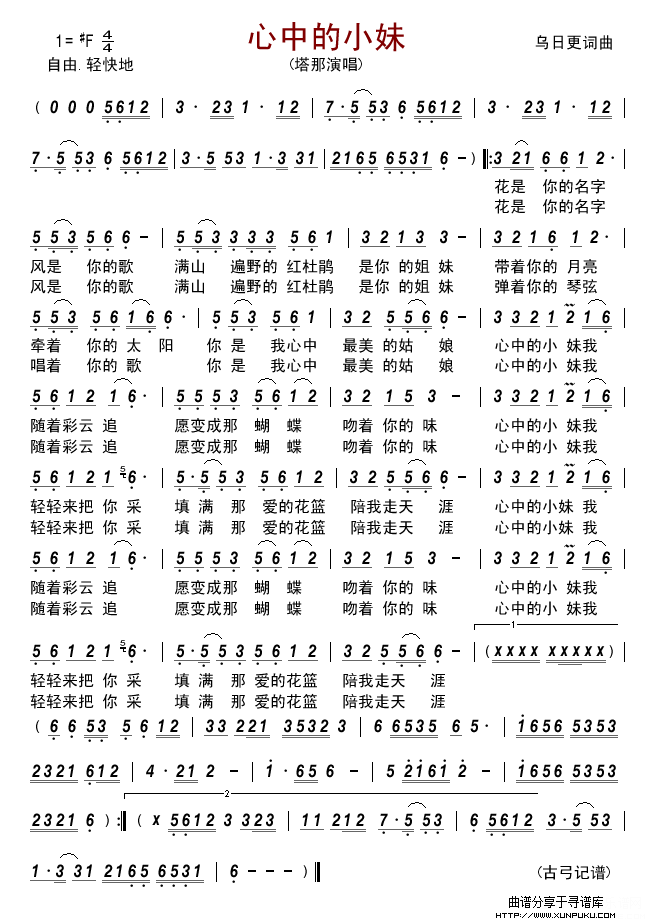 心中的小妹
1= #F 4/4
乌日更词曲
自由.轻快地
(塔那演唱)
( 0 0 0 5612 | 3 · 23 1 · 12 | 7 · 5 53 6 5612 | 3 · 23 1 · 12 |
7 · 5 53 6 5612 | 3 · 5 53 1 · 3 31 | 2165 6531 6 – ) ‖: 3 21 6 6 1 2 · |
花是 你的名字
花是 你的名字
5 5 3 5 6 6 – | 5 5 3 3 3 3 5 6 1 | 3 2 1 3 3 – | 3 3 2 1 6 1 2 · |
风是 你的歌 满山 遍野的 红杜鹃 是你 的姐 妹 带着你的 月亮
风是 你的歌 满山 遍野的 红杜鹃 是你 的姐 妹 弹着你的 琴弦
5 5 3 5 6 1 6 6 · | 5 5 3 5 6 1 | 3 2 5 5 6 6 – | 3 3 2 1 2 1 6 |
牵着 你的 太 阳 你 是 我心中 最美 的姑 娘 心中的小 妹我
唱着 你的 歌 你 是 我心中 最美 的姑 娘 心中的小 妹我
5 6 1 2 1 6 · | 5 5 5 3 5 6 1 2 | 3 2 1 5 3 – | 3 3 2 1 2 1 6 |
随着彩云 追 愿变成那 蝴 蝶 吻着 你的 味 心中的小 妹我
随着彩云 追 愿变成那 蝴 蝶 吻着 你的 味 心中的小 妹我
5 6 1 2 1 5 6 · | 5 · 5 5 3 5 6 1 2 | 3 2 5 5 6 6 – | 3 3 2 1 2 1 6 |
轻轻来把 你 采 填 满 那 爱的花篮 陪我走天 涯 心中的小妹 我
轻轻来把 你 采 填 满 那 爱的花篮 陪我走天 涯 心中的小妹 我
5 6 1 2 1 6 · | 5 5 5 3 5 6 1 2 | 3 2 1 2 3 – | 3 3 2 1 2 1 6 |
随着彩云 追 愿变成那 蝴 蝶 吻着 你的 味 心中的小 妹我
随着彩云 追 愿变成那 蝴 蝶 吻着 你的 味 心中的小 妹我
1
5 6 1 2 1 5 6 · | 5 · 5 5 3 5 6 1 2 | 3 2 5 5 6 6 – | (x x x x x x x x x) |
轻轻来把 你 采 填 满 那 爱的花篮 陪我走天 涯
轻轻来把 你 采 填 满 那 爱的花篮 陪我走天 涯
( 6 6 53 5 6 12 | 33 221 3532 3 | 6 6535 6 5 · | 1656 5353 |
2321 612 | 4 · 21 2 – | 1 · 65 6 – | 5 2161 2 – | 1656 5353 |
2
2321 6 ) :‖ ( x 5612 3 323 | 11 212 7 · 5 53 | 6 5612 3 · 5 53 |
1 · 3 31 2165 6531 | 6 – – – ) ‖
(古弓记谱)
曲谱分享于寻谱库
HTTP://WWW.XUNPUKU.COM